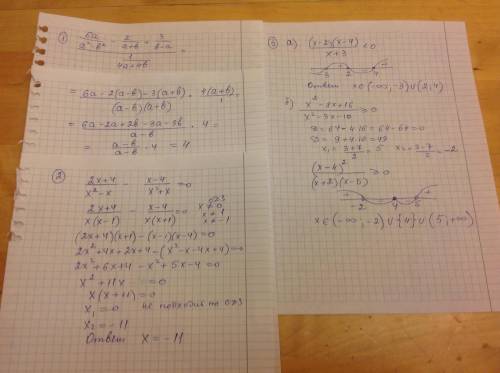 ① (6a/(a²-b²) - 2/(a+b) - 3/(b-a)) / (1/(4a+4b)) =
= (6a-2(a-b)-3(a+b))/((a-b)(a+b)) · 4(a+b)/1 =
= (6a-2a+2b-3a-3b)/(a-b) · 4 =
= (a-b)/(a-b) · 4 = 4
②
(2x+4)/(x²-x) - (x-4)/(x²+x) = 0
(2x+4)/(x(x-1)) - (x-4)/(x(x+1)) = 0
ОДЗ
x ≠ 0
x ≠ 1
x ≠ -1
(2x+4)(x+1)-(x-1)(x-4)=0
2x²+4x+2x+4-(x²-x-4x+4)=0
2x²+6x+4-x²+5x-4=0
x²+11x =0
x(x+11)=0
x₁=0 не подходит по ОДЗ
x₂=-11
Ответ x=-11
③ а) (x-2)(x-4)/(x+3) < 0
- + - +
-3 2 4
Ответ x∈(-∞;-3)∪(2;4)
б) (x²-8x+16)/(x²-3x-10) ≥ 0
D=64-4·16=64-64=0
D=9+4·10=49
x₁=(3+7)/2=5 x₂=(3-7)/2=-2
(x-4)²/((x+2)(x-5)) ≥ 0
+ - - +
-2 4 5
x∈(-∞;-2)∪{4}∪(5;+∞)